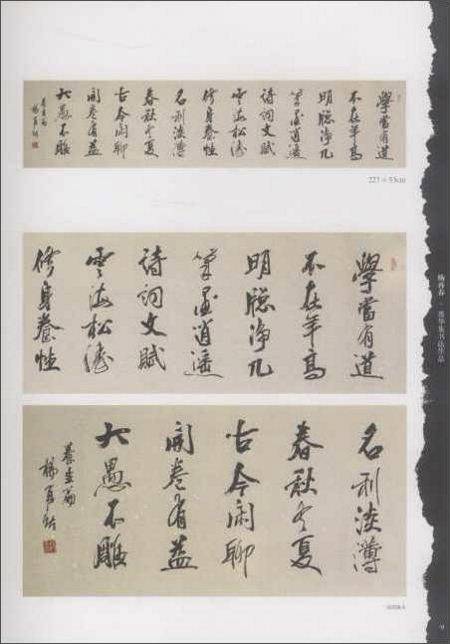 學當有道
不在年高
明聰淨几
筆墨逍遙
詩詞文賦
雲海松濤
修身養性
名利淡薄
春秋冬夏
古今閑聊
開卷有益
大愚不雕
養生篇
223×53cm
學當有道
不在年高
明聰淨几
筆墨逍遙
詩詞文賦
雲海松濤
修身養性
名利淡薄
春秋冬夏
古今閑聊
開卷有益
大愚不雕
養生篇